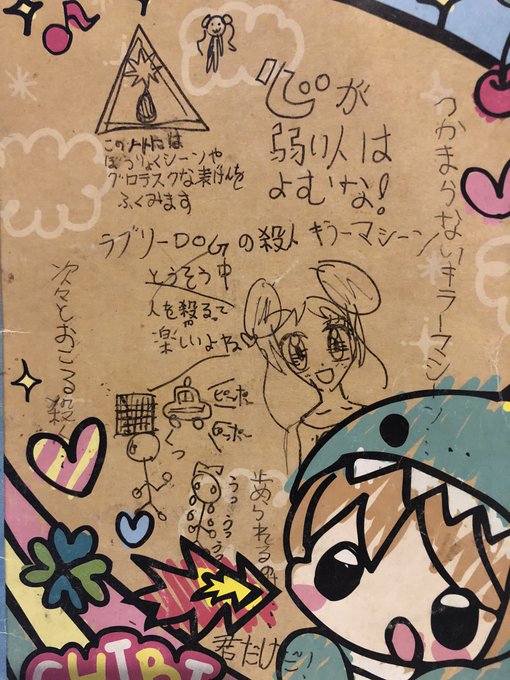 心が
弱い人は
よむな!
このノートには
ぼうりょくシーンや
グロテスクな表げんを
ふくみます
つかまらないキラーマシーン
ラブリーDOGの殺人キラーマシーン
とうそう中
人を殺るって
楽しいよね
次々とおこる殺
ピーポー
くっ
うっ
うっ
止められるのは
君だけだ!
CHIBI